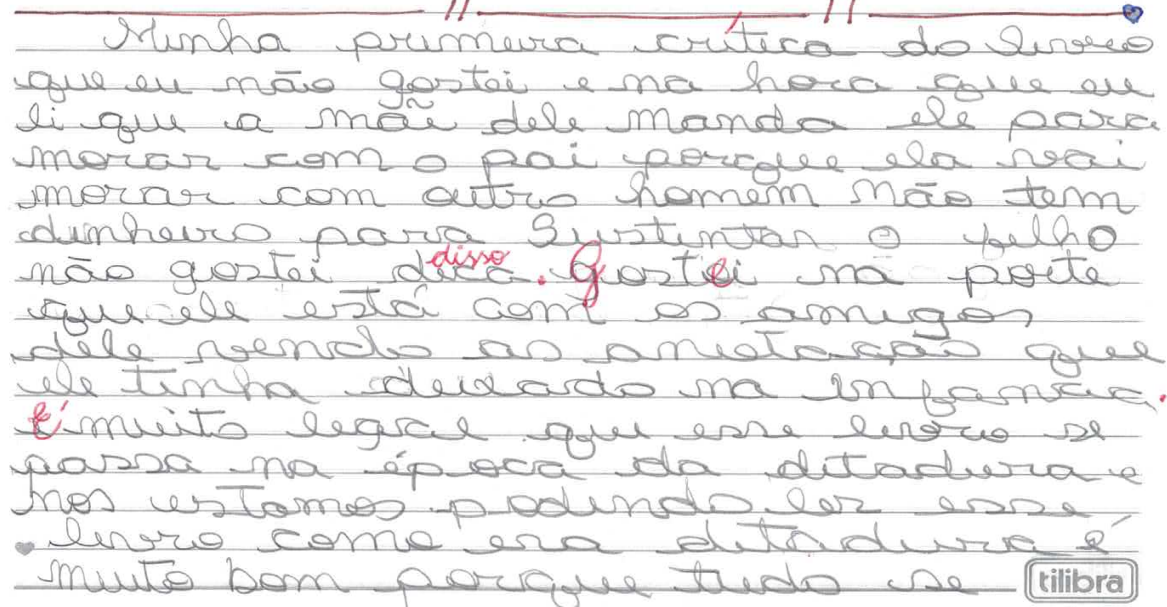 Minha primeira crítica do livro
que eu não gostei e na hora que eu
li que a mãe dele manda ele para
morar com o pai porque ela vai
morar com outro homem não tem
dinheiro para Sustentar o filho
não gostei disso. Gostei na parte
que ele está com os amigos
dele vendo as anotação que
ele tinha deixado na infancia.
É muito legal que esse livro se
passa na época da ditadura e
nos estamos podendo ler esse
livro como era ditadura é
muito bom porque tudo se
tilibra